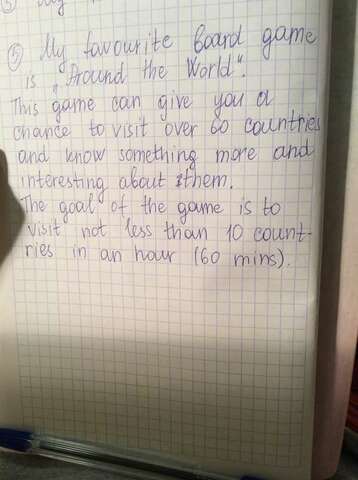 5 My favourite board game
is „Around the World".
This game can give you a
chance to visit over 60 countries
and know something more and
interesting about them.
The goal of the game is to
visit not less than 10 count-
ries in an hour (60 mins).